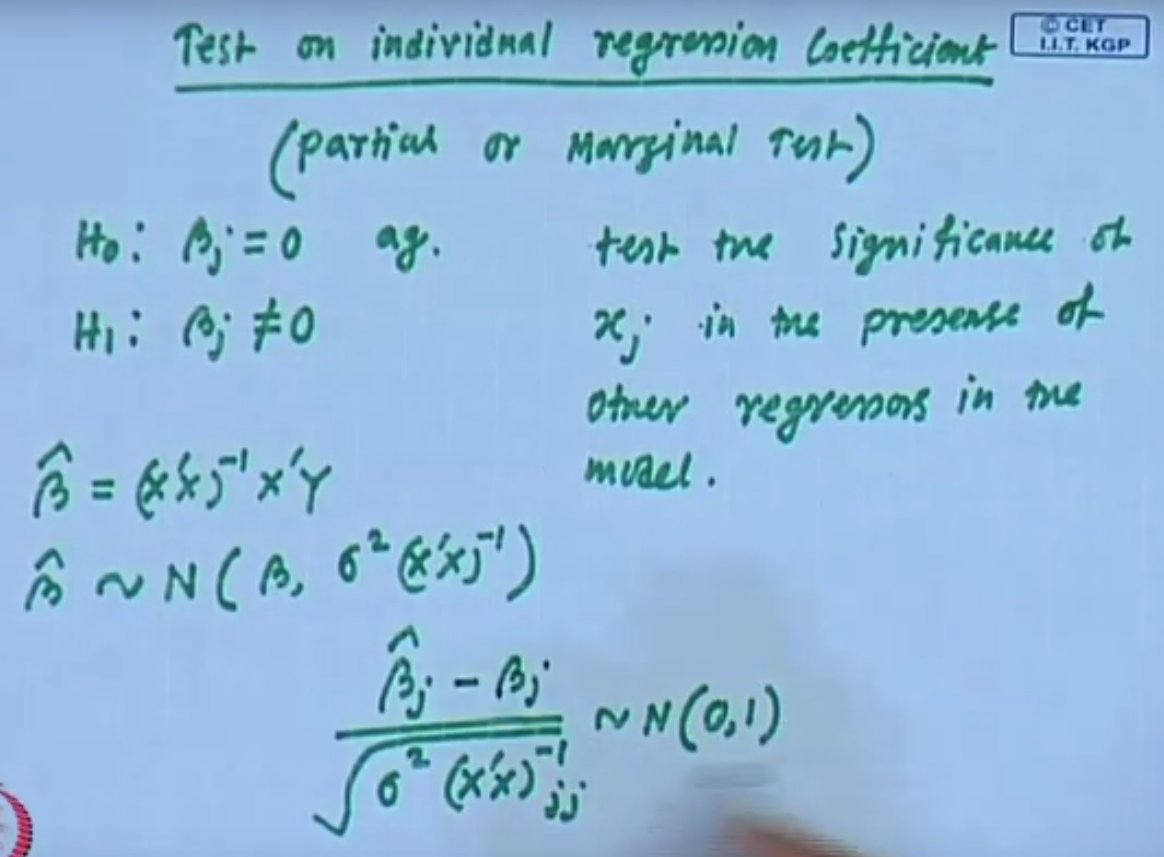 Test on individual regression Coefficient
© CET
I.I.T. KGP
(Partial or Marginal Test)
H₀: βⱼ = 0 ag.
H₁: βⱼ ≠ 0
test the significance of
xⱼ in the presense of
other regressors in the
model.
β̂ = (X'X)⁻¹X'Y
β̂ ~ N(β, σ²(X'X)⁻¹)
β̂ⱼ - βⱼ
√σ²(X'X)⁻¹ⱼⱼ ~ N(0,1)